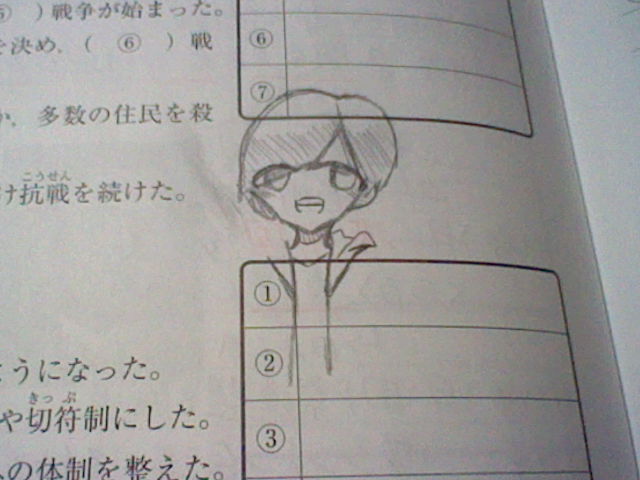 ⑤ )戦争が始まった。
を決め,( ⑥ )戦
⑥
⑦
か,多数の住民を殺
こうせん
け抗戦を続けた。
①
②
ようになった。
きっぷ
や切符制にした。
③
の体制を整えた。